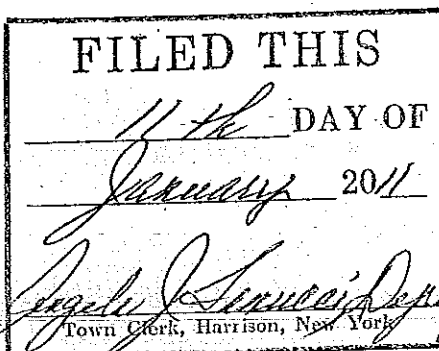 FILED THIS
11th DAY OF
January 2011
Angelo J
Town Clerk, Harrison, New York